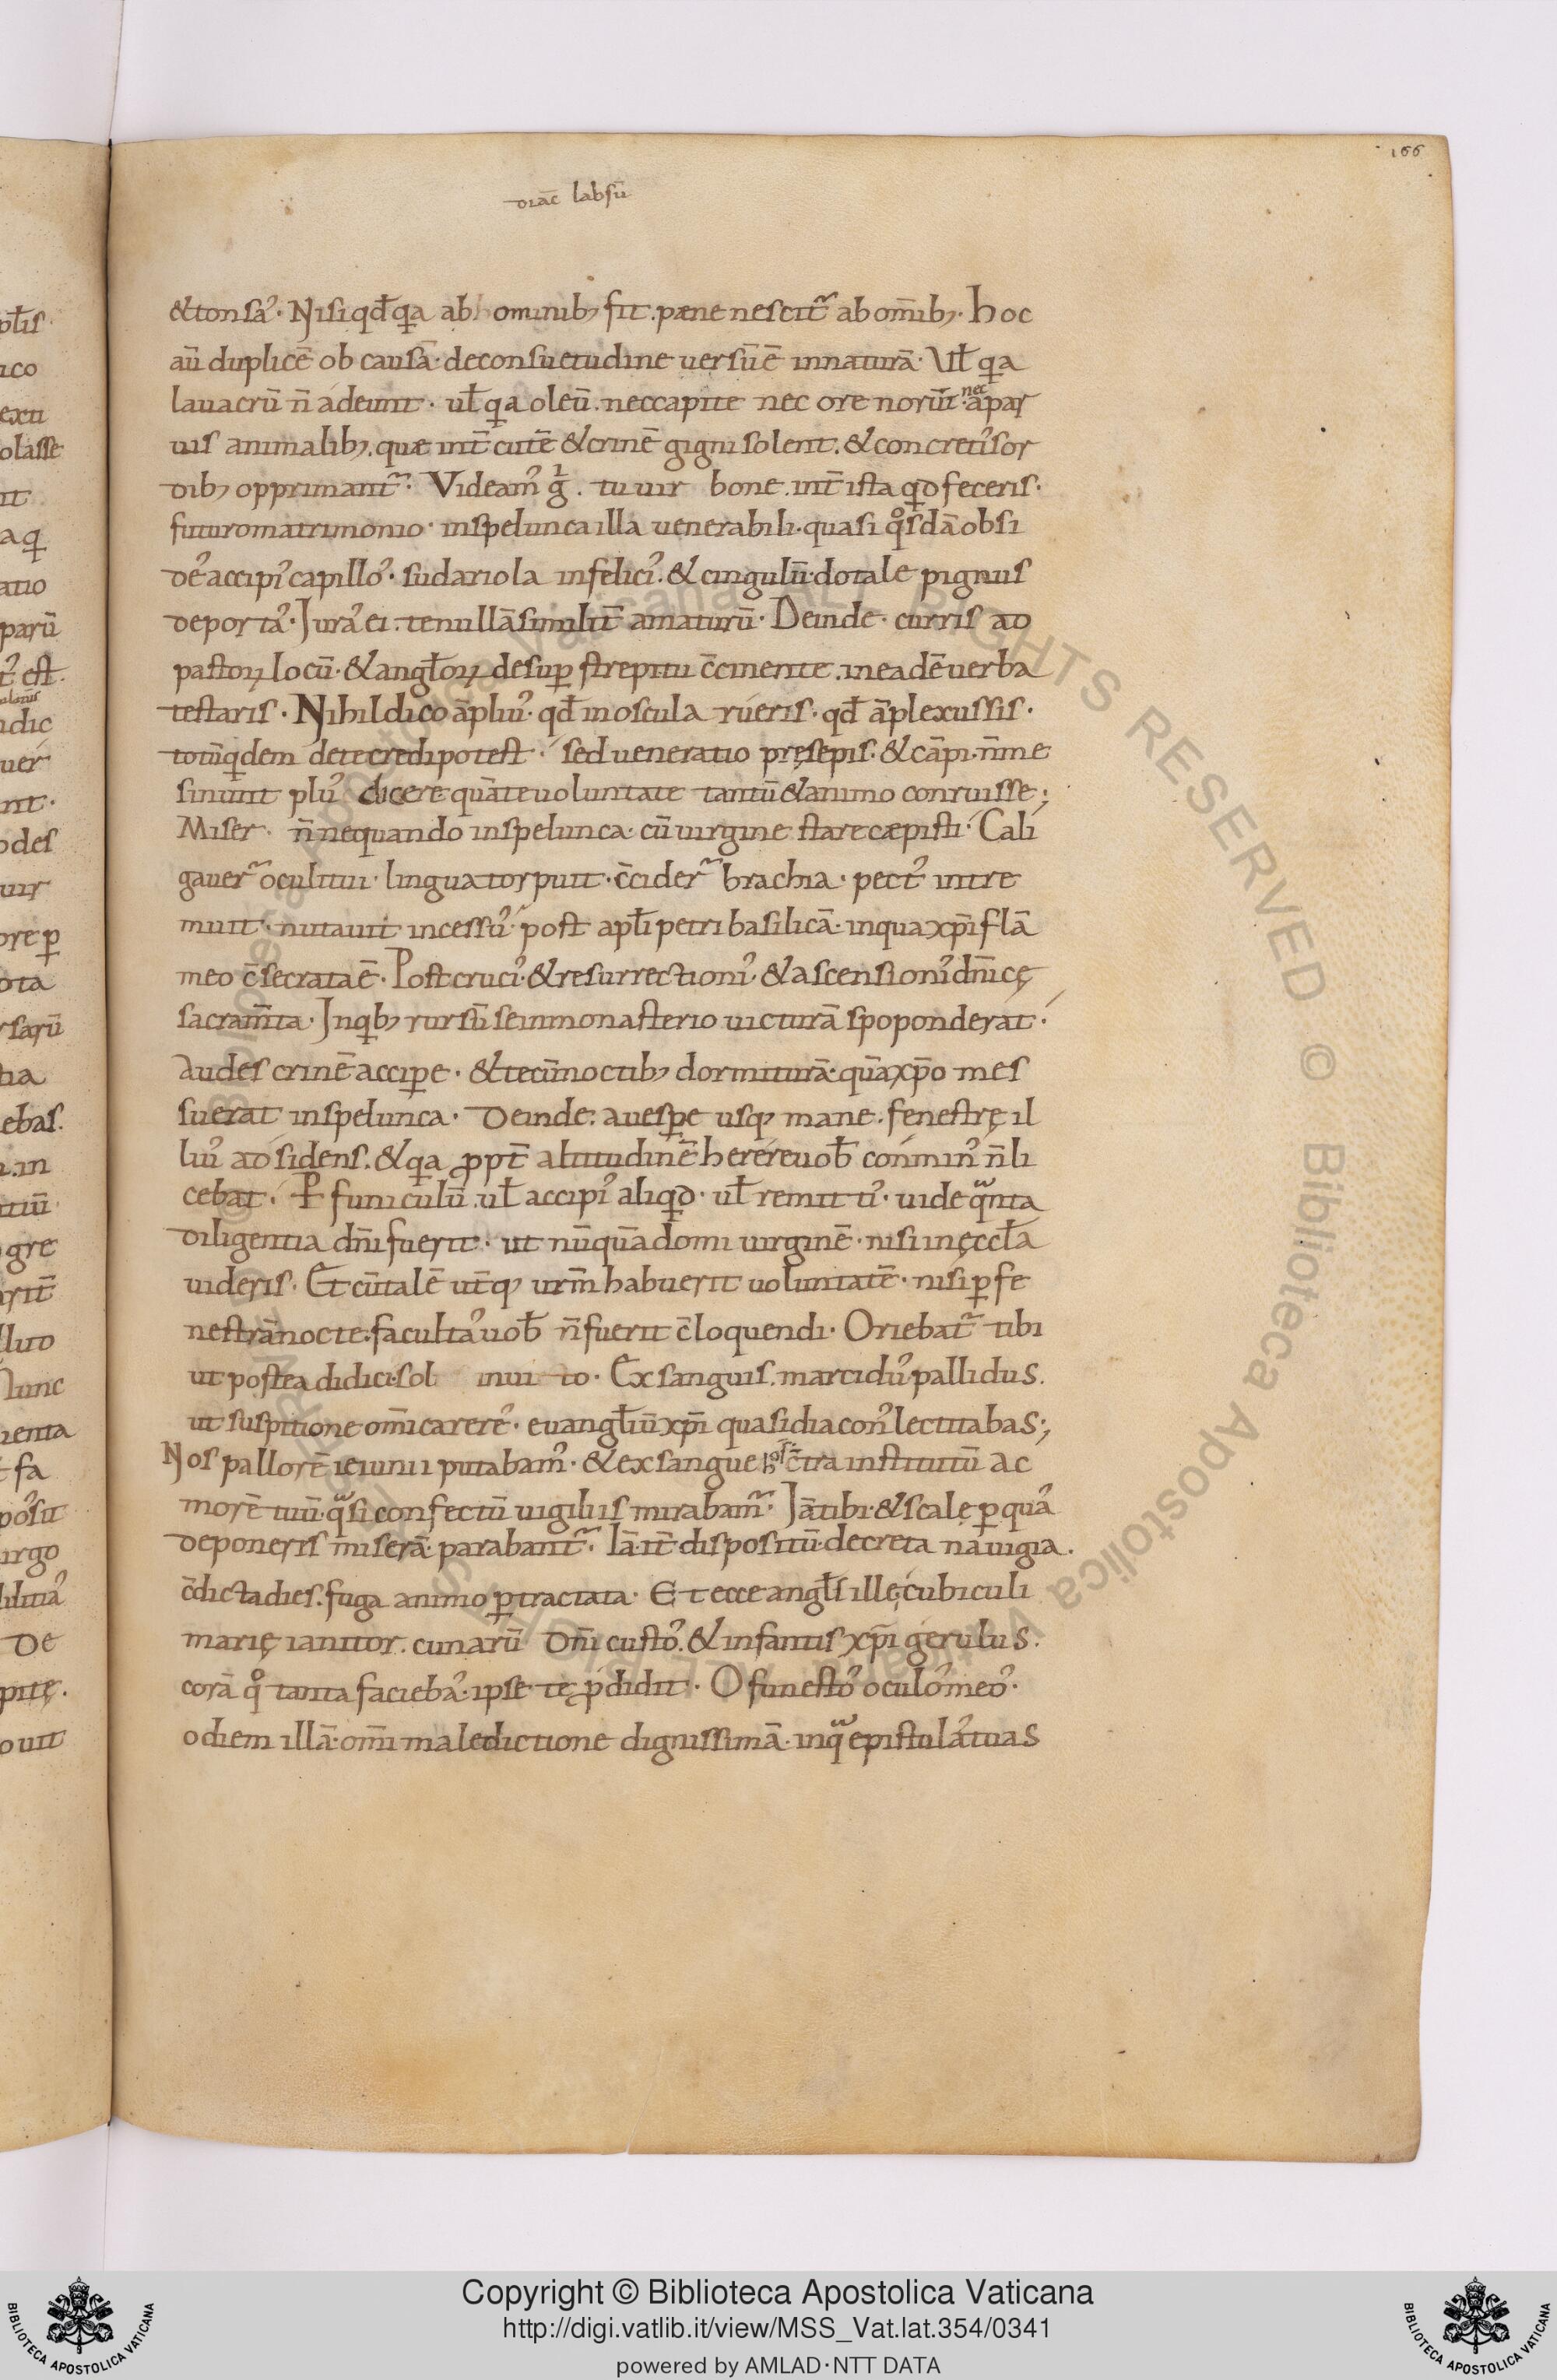 166
diac̄ labsū
&tonsa᾽· Nisi qđ qa ab hominib; fit. pæne nescit᷑ ab om̄ib;· hoc
aū duplicē ob causā· deconsuetudine uersū ē innaturā· Vƚ qa
lauacrū n̄ adeunt· uƚ qa oleū. neccapite nec ore norūt· nec a par
uis animalib;. quæ int̄ cutē & crinē gigni solent. & concreti᾽ sor
dib; opprimant᷑· Videam᾽ g̊. tu uir bone. int̄ ista qd feceris·
futuro matrimonio· inspelunca illa uenerabili· quasi qosdā obsi
de᾽ accipi᾽ capillo᾽· sudariola infelici᾽. & cingulū· dotale pignus
deporta᾽· Jura᾽ ei. te nullā similit̄ amaturū· Deinde· curris ad
pastoꝝ locū· & angƚoꝝ desup strepitu c̄cinente. in eadē uerba
testaris· Nihil dico āpliu᾽· qđ in oscula rueris· qđ āplexus sis·
totū qdem de te credi potest· sed ueneratio pręsepis· & cāpi· n̄ me
sinunt plu᾽ dicere quā te uoluntate tantū & animo conruisse;
Miser· n̄ne quando inspelunca· cū uirgine stare cæpisti· Cali
gauer᷑ oculi tui· lingua torpuit· c̄cider᷑ brachia· pect᾽ intre
muit· nutauit incessu᾽· post apƚi petri basilicā· inqua xp̄i flā
meo c̄secrata ē· Post cruci᾽· & resurrectioni᾽· & ascensioni᾽ dn̄icę
sacram̄ta· Jnqb; rursū se inmonasterio uicturā spoponderat·
Audes crinē accipe· & tecū noctib; dormiturā· quā xp̄o mes
suerat inspelunca· Deinde· a uespe usq; mane· fenestrę il
liu᾽ adsidens. & qa ꝓpt̄ altitudinē herere uob̄ conmin᾽ n̄ li
cebat· ꝑ funiculū. uƚ accipi᾽ aliqd· uƚ remitti᾽· uide qanta
diligentia dn̄i fuerit· ut nūquā domi uirginē· nisi in ęccƚa
uideris· Et cū talē utq; urm̄ habuerit uoluntatē· nisi ꝑ fe
nestrā nocte· faculta᾽ uob̄ n̄ fuerit c̄loquendi· Oriebat᷑ tibi
ut postea didici· sol inuito· Exsanguis. marcidu᾽ pallidus.
ut suspitione om̄i carere᾽· euangƚiū xp̄i quasi diacon᾽ lectitabas;
Nos pallorē ieiunii putabam᾽· & exsangue hos c̄tra institutū ac
morē tuū· qasi confectū uigiliis mirabam᷑· Jā tibi· & scalę ꝑ qua᾽
deponeris miserā· parabant᷑· Iā it̄ dispositū· decreta nauigia.
c̄dicta dies. fuga animo ꝑtractata· Et ecce angƚs ille, cubiculi
marię ianitor. cunarū dn̄i custo᾽. & infantis xp̄i gerulus.
corā qo tanta facieba᾽· ipse te ꝓdidit· O funesto᾽ oculo᾽ meo᾽·
o diem illā· om̄i maledictione dignissimā· inqa epistula᾽ tuas
Copyright © Biblioteca Apostolica Vaticana
http://digi.vatlib.it/view/MSS_Vat.lat.354/0341
powered by AMLAD·NTT DATA